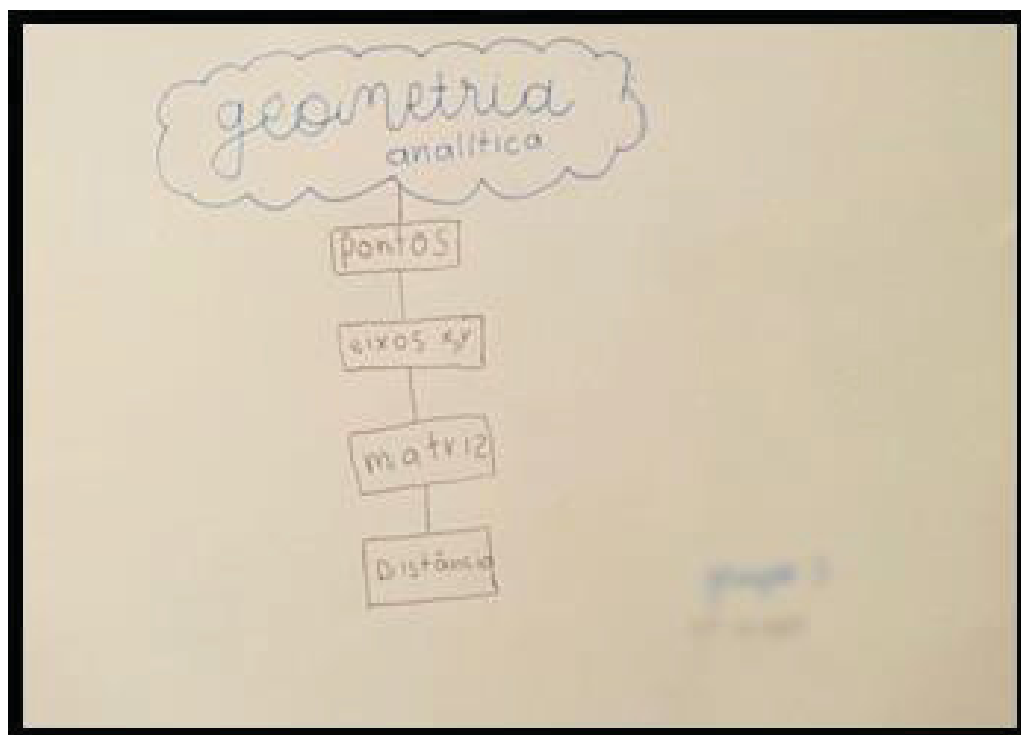 geometria
analítica
pontos
eixos x,y
matriz
Distância